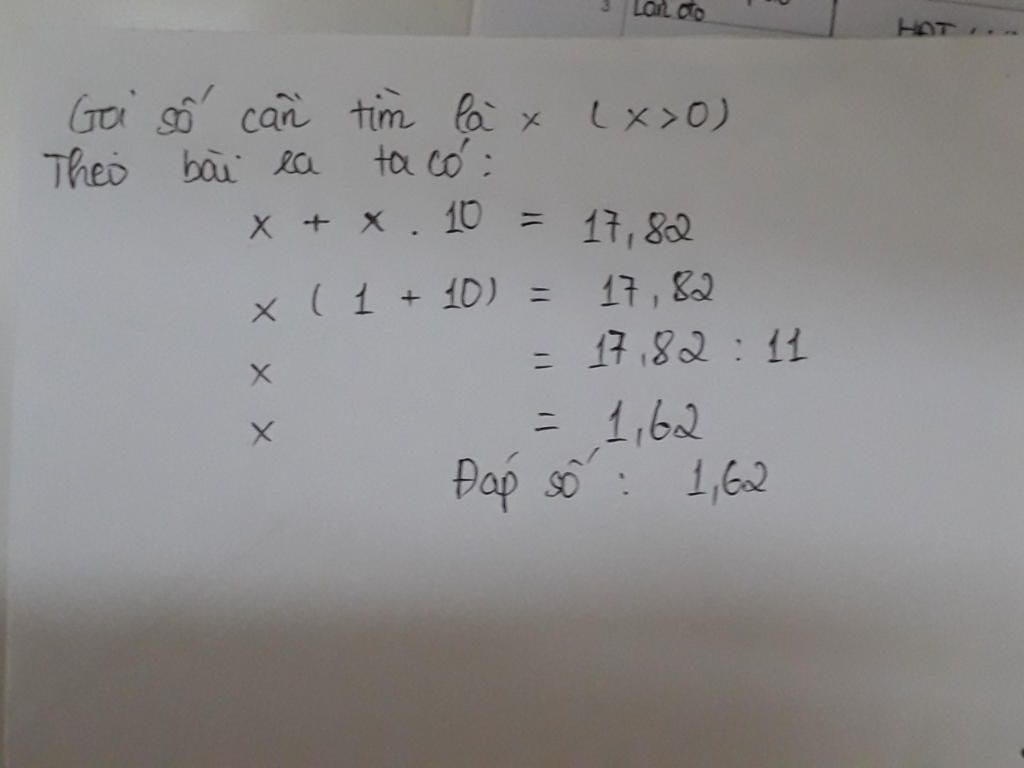 3 Lần đo
HĐT ....
Gọi số cần tìm là x (x>0)
Theo bài ra ta có:
x + x . 10 = 17,82
x ( 1 + 10) = 17,82
x = 17,82 : 11
x = 1,62
Đáp số : 1,62